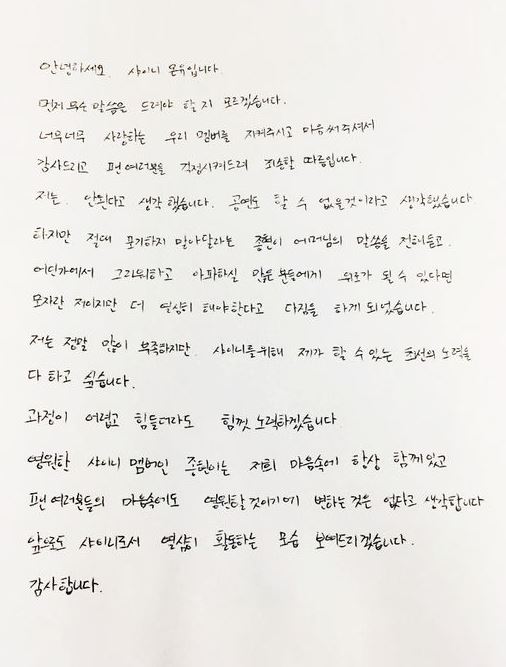 안녕하세요. 샤이니 온유입니다.
먼저 무슨 말씀을 드려야 할 지 모르겠습니다.
너무너무 사랑하는 우리 멤버를 지켜주시고 마음써주셔서
감사드리고 팬여러분들 걱정시켜드려 죄송할 따름입니다.
저는. 안된다고 생각 했습니다. 공연도 할 수 없을것이라고 생각했습니다
하지만 절대 포기하지 말아달라는 종현이 어머님의 말씀을 전해듣고.
어딘가에서 그리워하고 아파하실 많은 분들에게 위로가 될 수 있다면
모자란 저이지만 더 열심히 해야한다고 다짐을 하게 되었습니다.
저는 정말 많이 부족하지만. 샤이니를위해 제가 할 수 있는 최선의 노력을
다 하고 싶습니다.
과정이 어렵고 힘들더라도 힘껏 노력하겠습니다
영원한 샤이니 멤버인 종현이는 저희 마음속에 항상 함께있고
팬여러분들의 마음속에도 영원할것이기에 변하는것은 없다고 생각합니다
앞으로도 샤이니로서 열심히 활동하는 모습 보여드리겠습니다.
감사합니다.